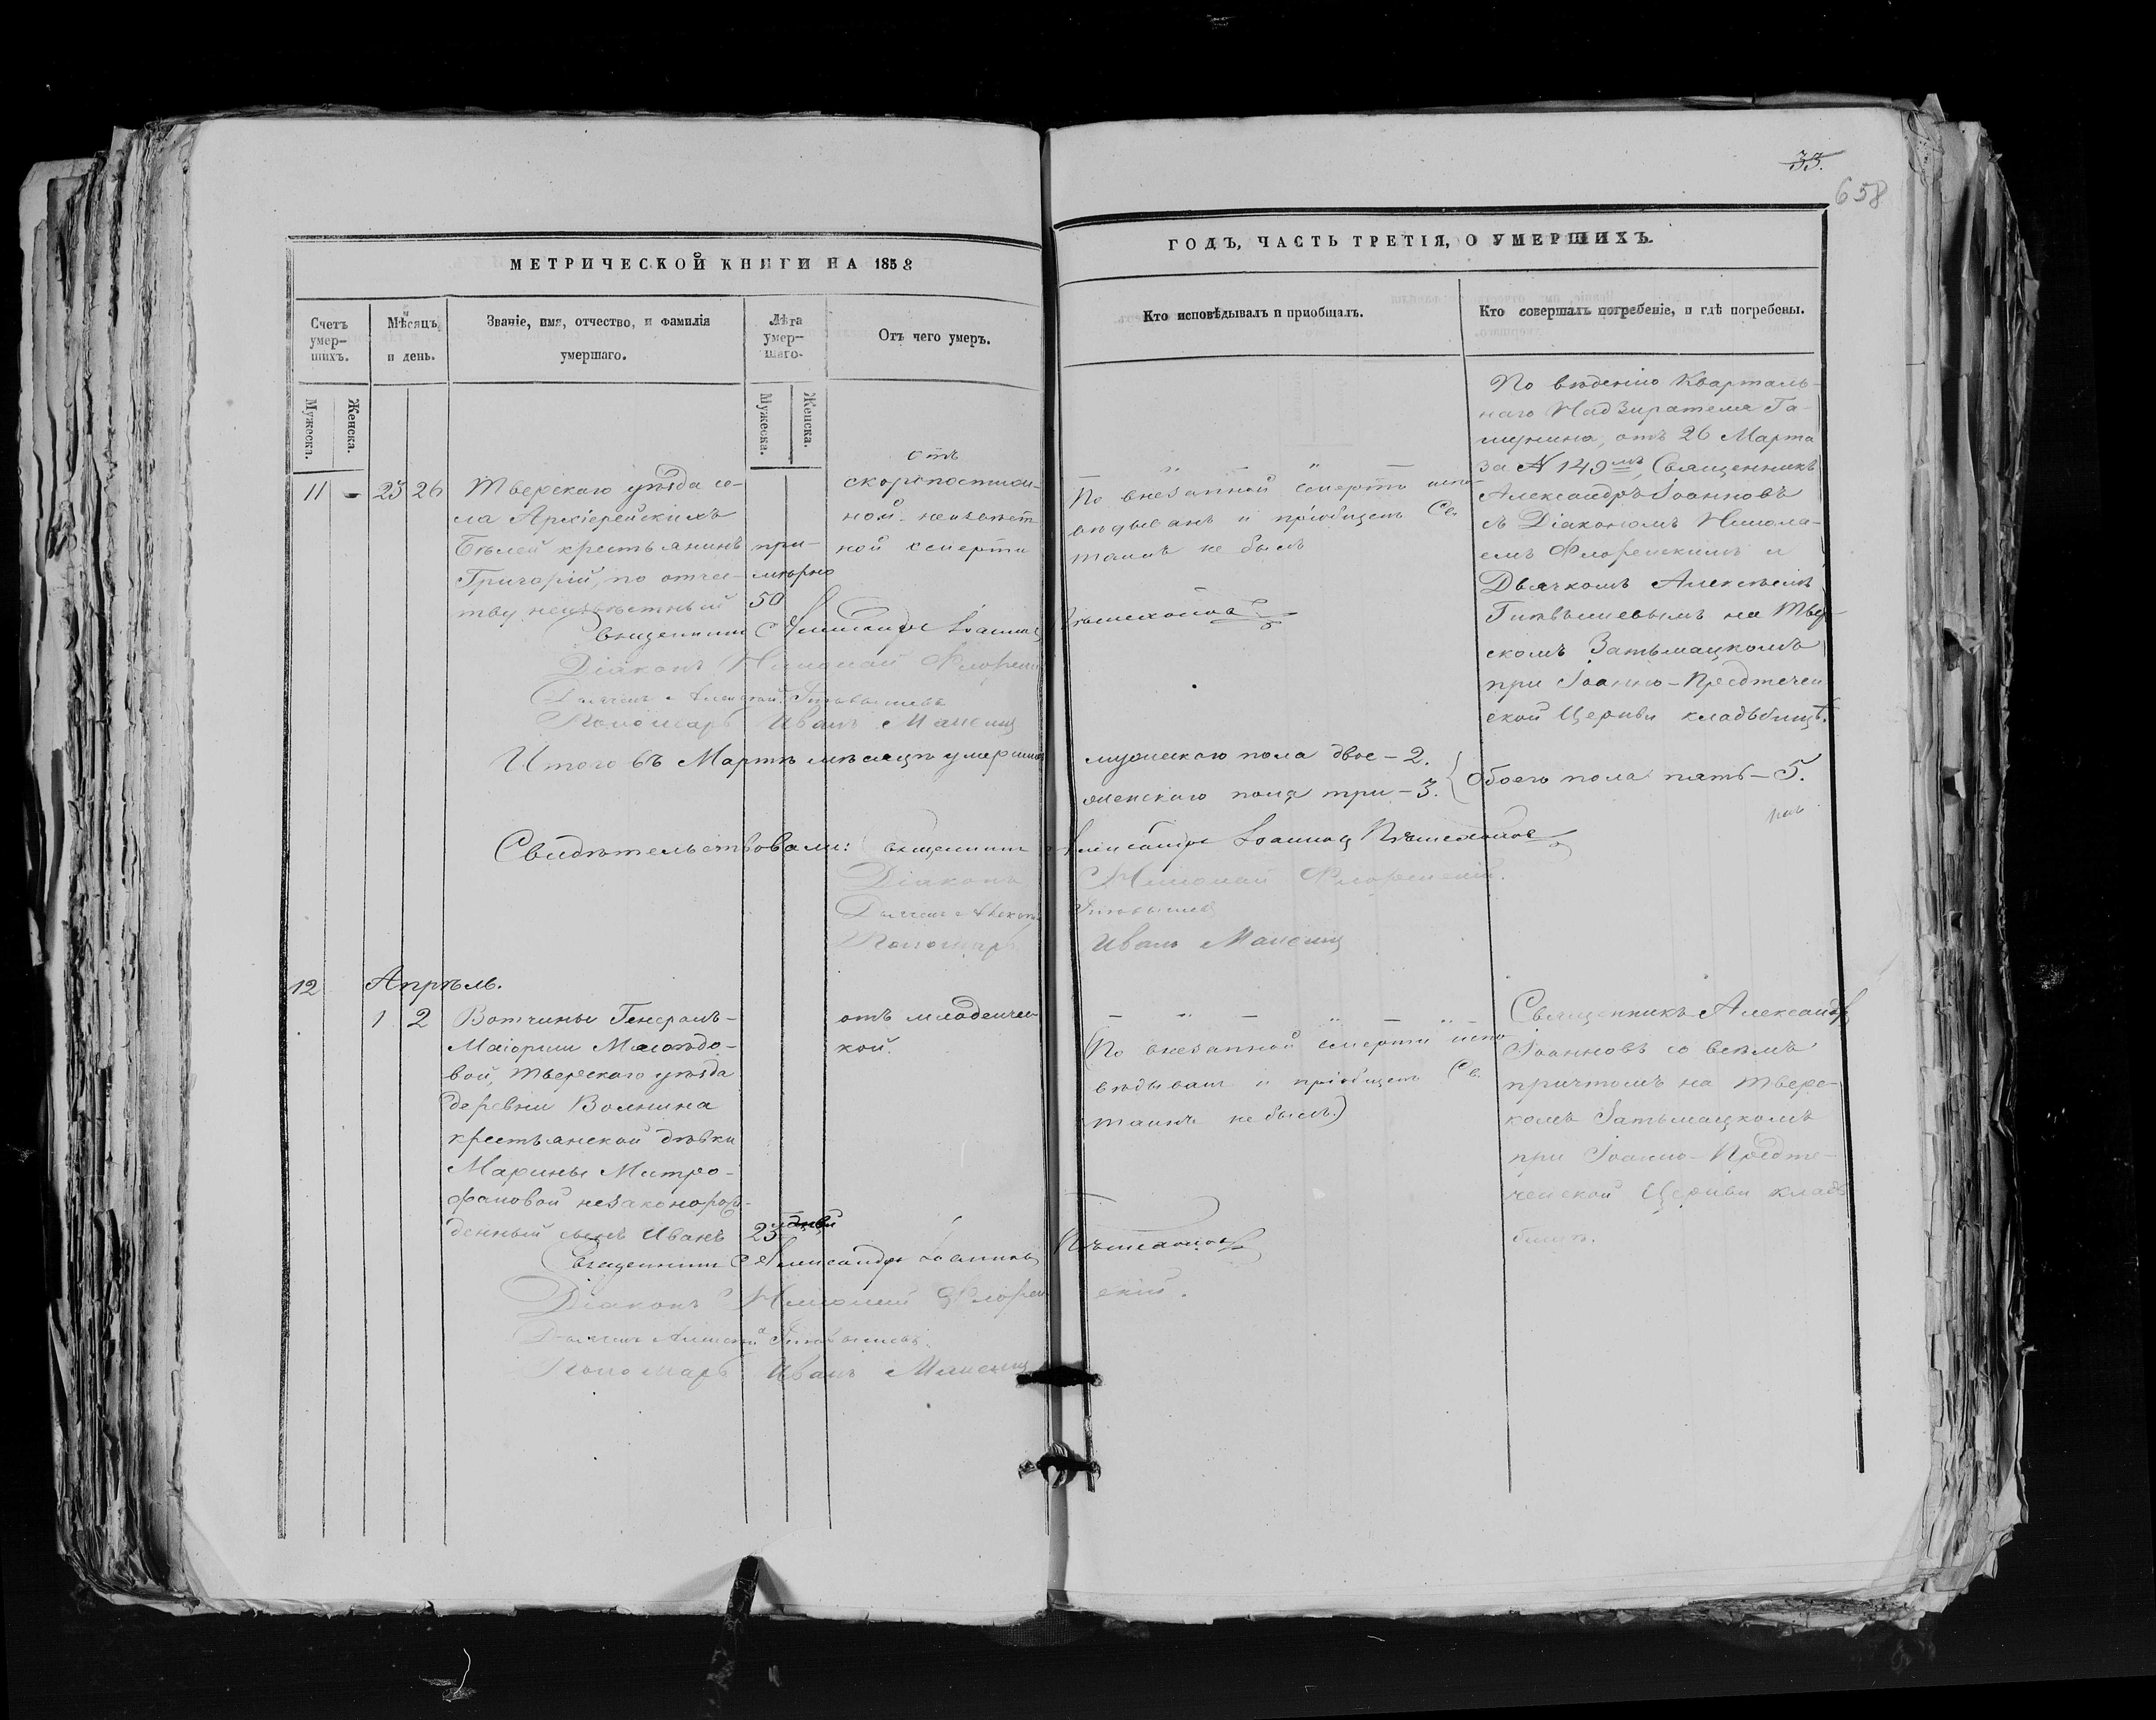 33.
658
МЕТРИЧЕСКОЙ КНИГИ НА 1858
ГОДЪ, ЧАСТЬ ТРЕТІЯ, О УМЕРШИХЪ.
Счетъ
умер-
шихъ.
Мужеска.
Женска.
Мѣсяцъ
и день.
Званіе, имя, отчество, и фамилія
умершаго.
Лѣта
умер-
шаго.
Мужеска.
Женска.
Отъ чего умеръ.
Кто исповѣдывалъ и пріобщалъ.
Кто совершалъ погребеніе, и гдѣ погребены.
11 - 25 26
Тверскаго уѣзда се-
ла Архіерейскихъ
Бѣлей крестьянинъ
Григорій, по отчес-
тву неизвѣстный
при-
мѣрно
50
отъ
скоропостиж-
ной неизвѣст
ной смерти
По внезапной смерти испо-
вѣдыванъ и пріобщенъ Св.
таинъ не былъ
По вѣденію Кварталь-
наго Надзирателя
отъ 26 Марта
за N 149мъ, Священникъ
Александръ Іоанновъ
съ Діакономъ Никола-
емъ Флоренскимъ и
Дьячкомъ Алексѣемъ
на Твер-
скомъ Затьмацкомъ
при Іоанно-Предтечен
ской Церкви кладбищѣ.
Священникъ Александръ Іоанновъ Пѣшехоновъ
Діаконъ Николай Флоренскій
Дьячекъ Алексѣй
Пономарь Иванъ
Итого въ Мартѣ мѣсяцѣ умершихъ мужескаго пола двое - 2.
женскаго пола три - 3.
Обоего пола пять - 5.
Свидѣтельствовали: Священникъ Александръ Іоанновъ Пѣшехоновъ
Діаконъ Николай Флоренскій.
Дьячекъ Алексѣй
Пономарь Иванъ
12 Апрѣль.
1 2
Вотчины Генералъ-
Маіорши
вой, Тверскаго уѣзда
деревни Волнина
крестьянской дѣвки
Марины Митро-
фановой незаконорож-
денный сынъ Иванъ
25 дней
отъ младенчес
кой.
(По внезапной смерти испо
вѣдыванъ и пріобщенъ Св.
таинъ не былъ.)
Священникъ Александръ
Іоанновъ со всѣмъ
причтомъ на Тверс-
комъ Затьмацкомъ
при Іоанно-Предте-
ченской Церкви кладб
бищѣ.
Священникъ Александръ Іоанновъ Пѣшехоновъ
Діаконъ Николай Флоренскій.
Дьячекъ Алексѣй
Пономарь Иванъ